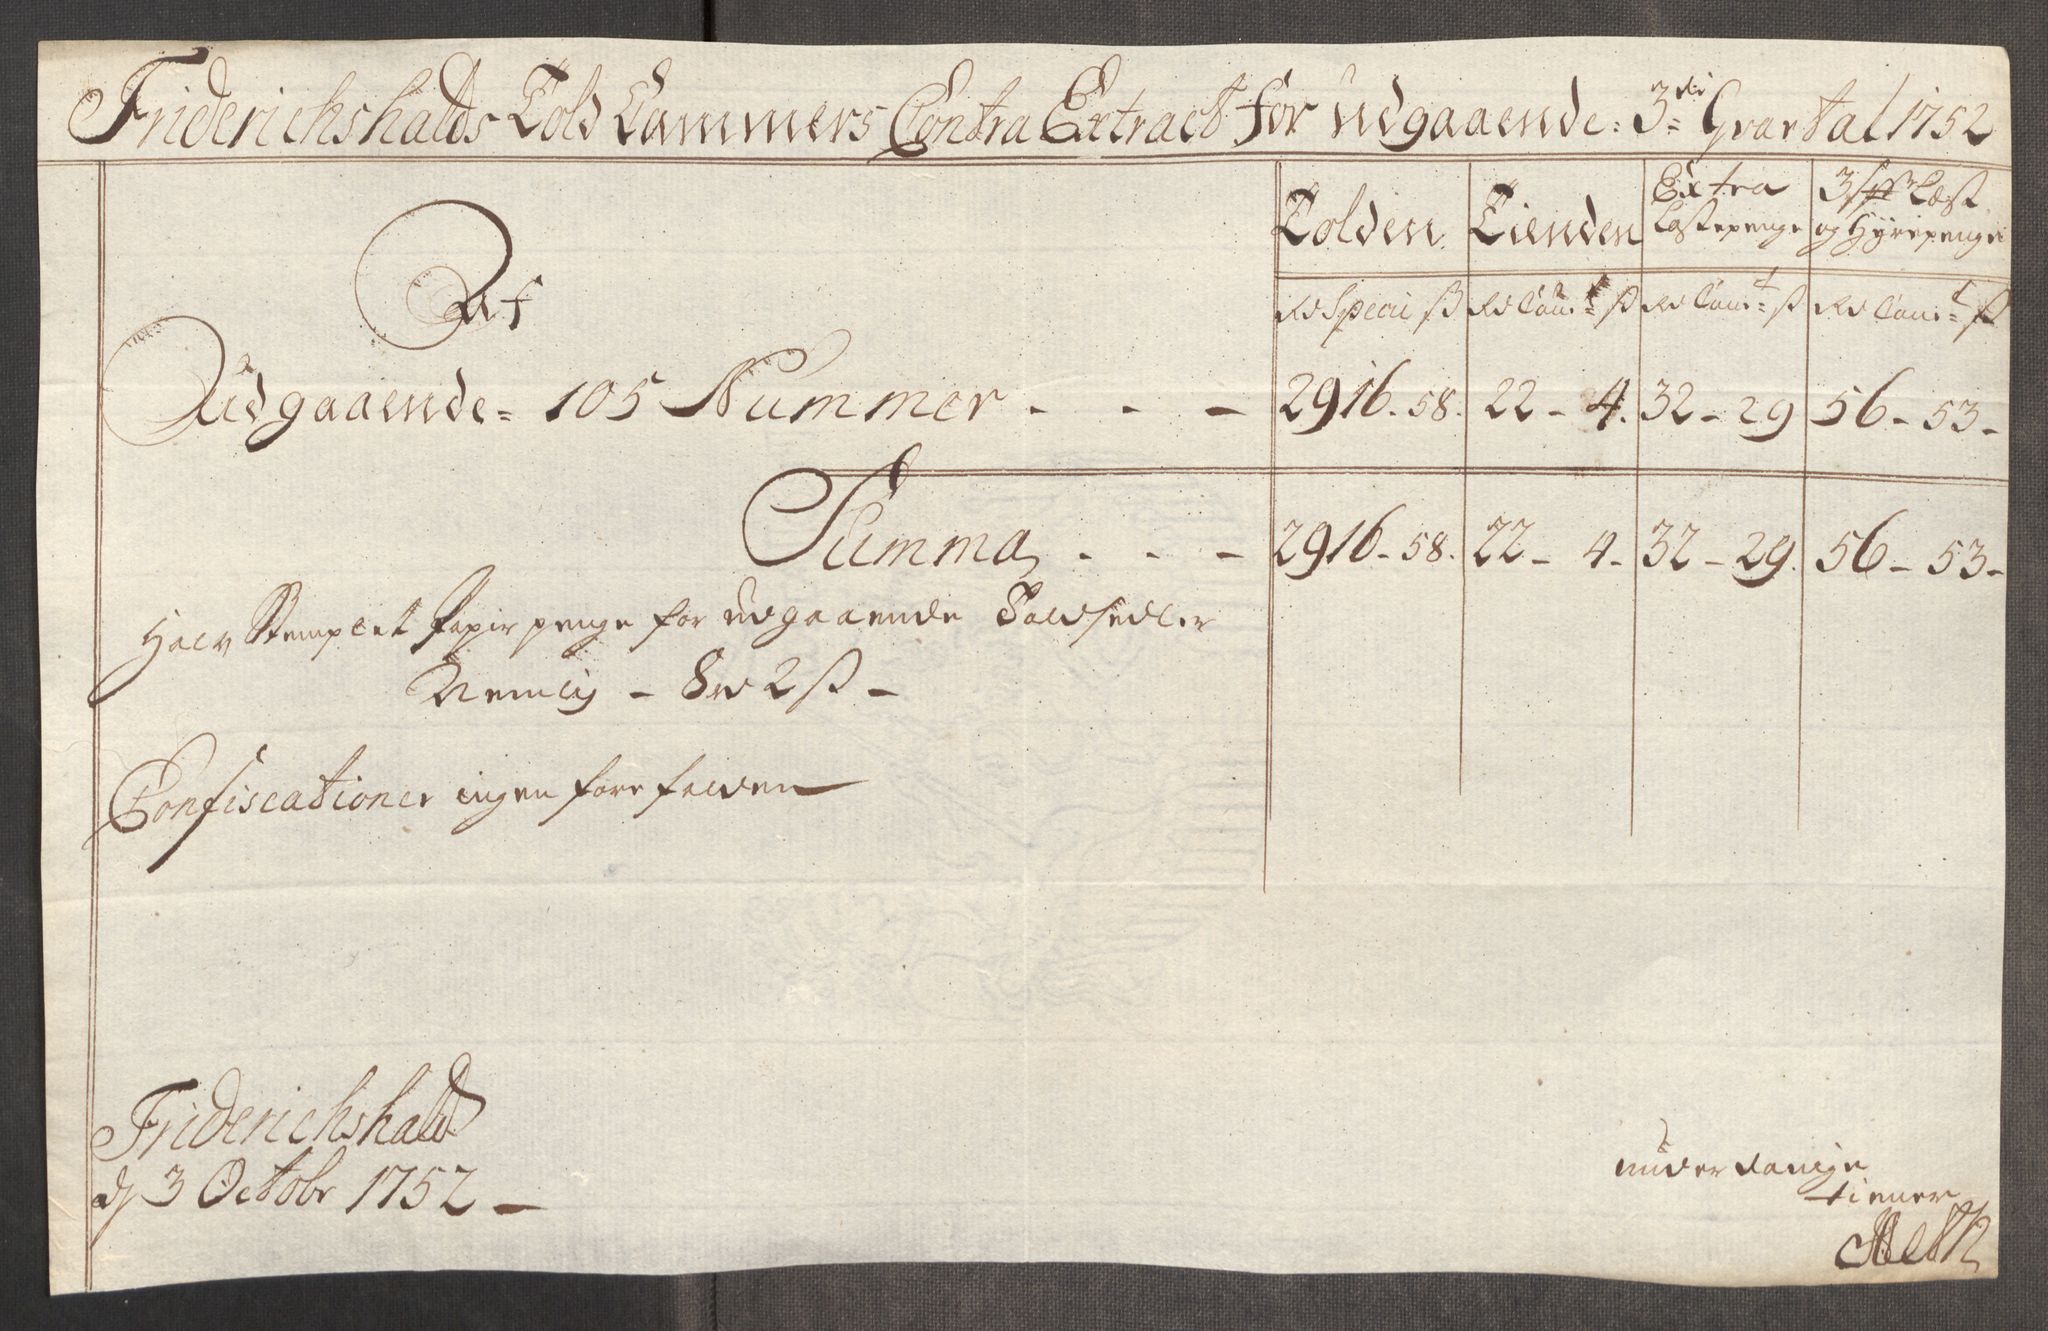 Friderichshalds Told Cammers Contra Extract for Udgaaende: 3di Qvartal 1752
Tolden Tienden Extra Lastepenge og Hyrepenge
Rd Speci ß Rd Cour:t ß Rd Cour:t ß Rd Cour:t ß
Af
Udgaaende = 105 Nummer - - - 2916. 58. 22 - 4. 32 - 29 56 - 53 -
Summa - - - 2916 - 58. 22 - 4 - 32 - 29. 56 - 53 -
Halv Stemplet Papir penge for udgaaende Toldsedler
Nemlig - 8 rd 2 ß -
Confiscationer ingen forefalden
Friderichshald
d 3 Octobr 1752 -
underdanige
tiener